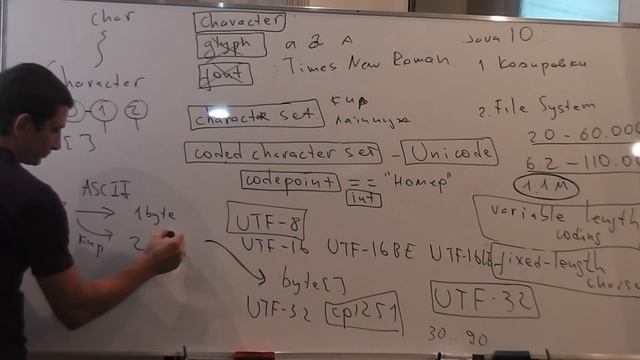 char
Character
1 2
{ }
ASCII
1 byte
кир
2
Character
glyph a a A
font : Times New Roman
character set кир
латиница
coded character set - Unicode
codepoint == "номер"
int
UTF-8
UTF-16 UTF-16BE UTF-16LE
byte[]
UTF-32 cp1251
Java 10:
1. Кодировки
2. File System
20 - 60.000
62 - 110.00
1.1M
variable length
coding
fixed-length
charse
UTF-32
30..90